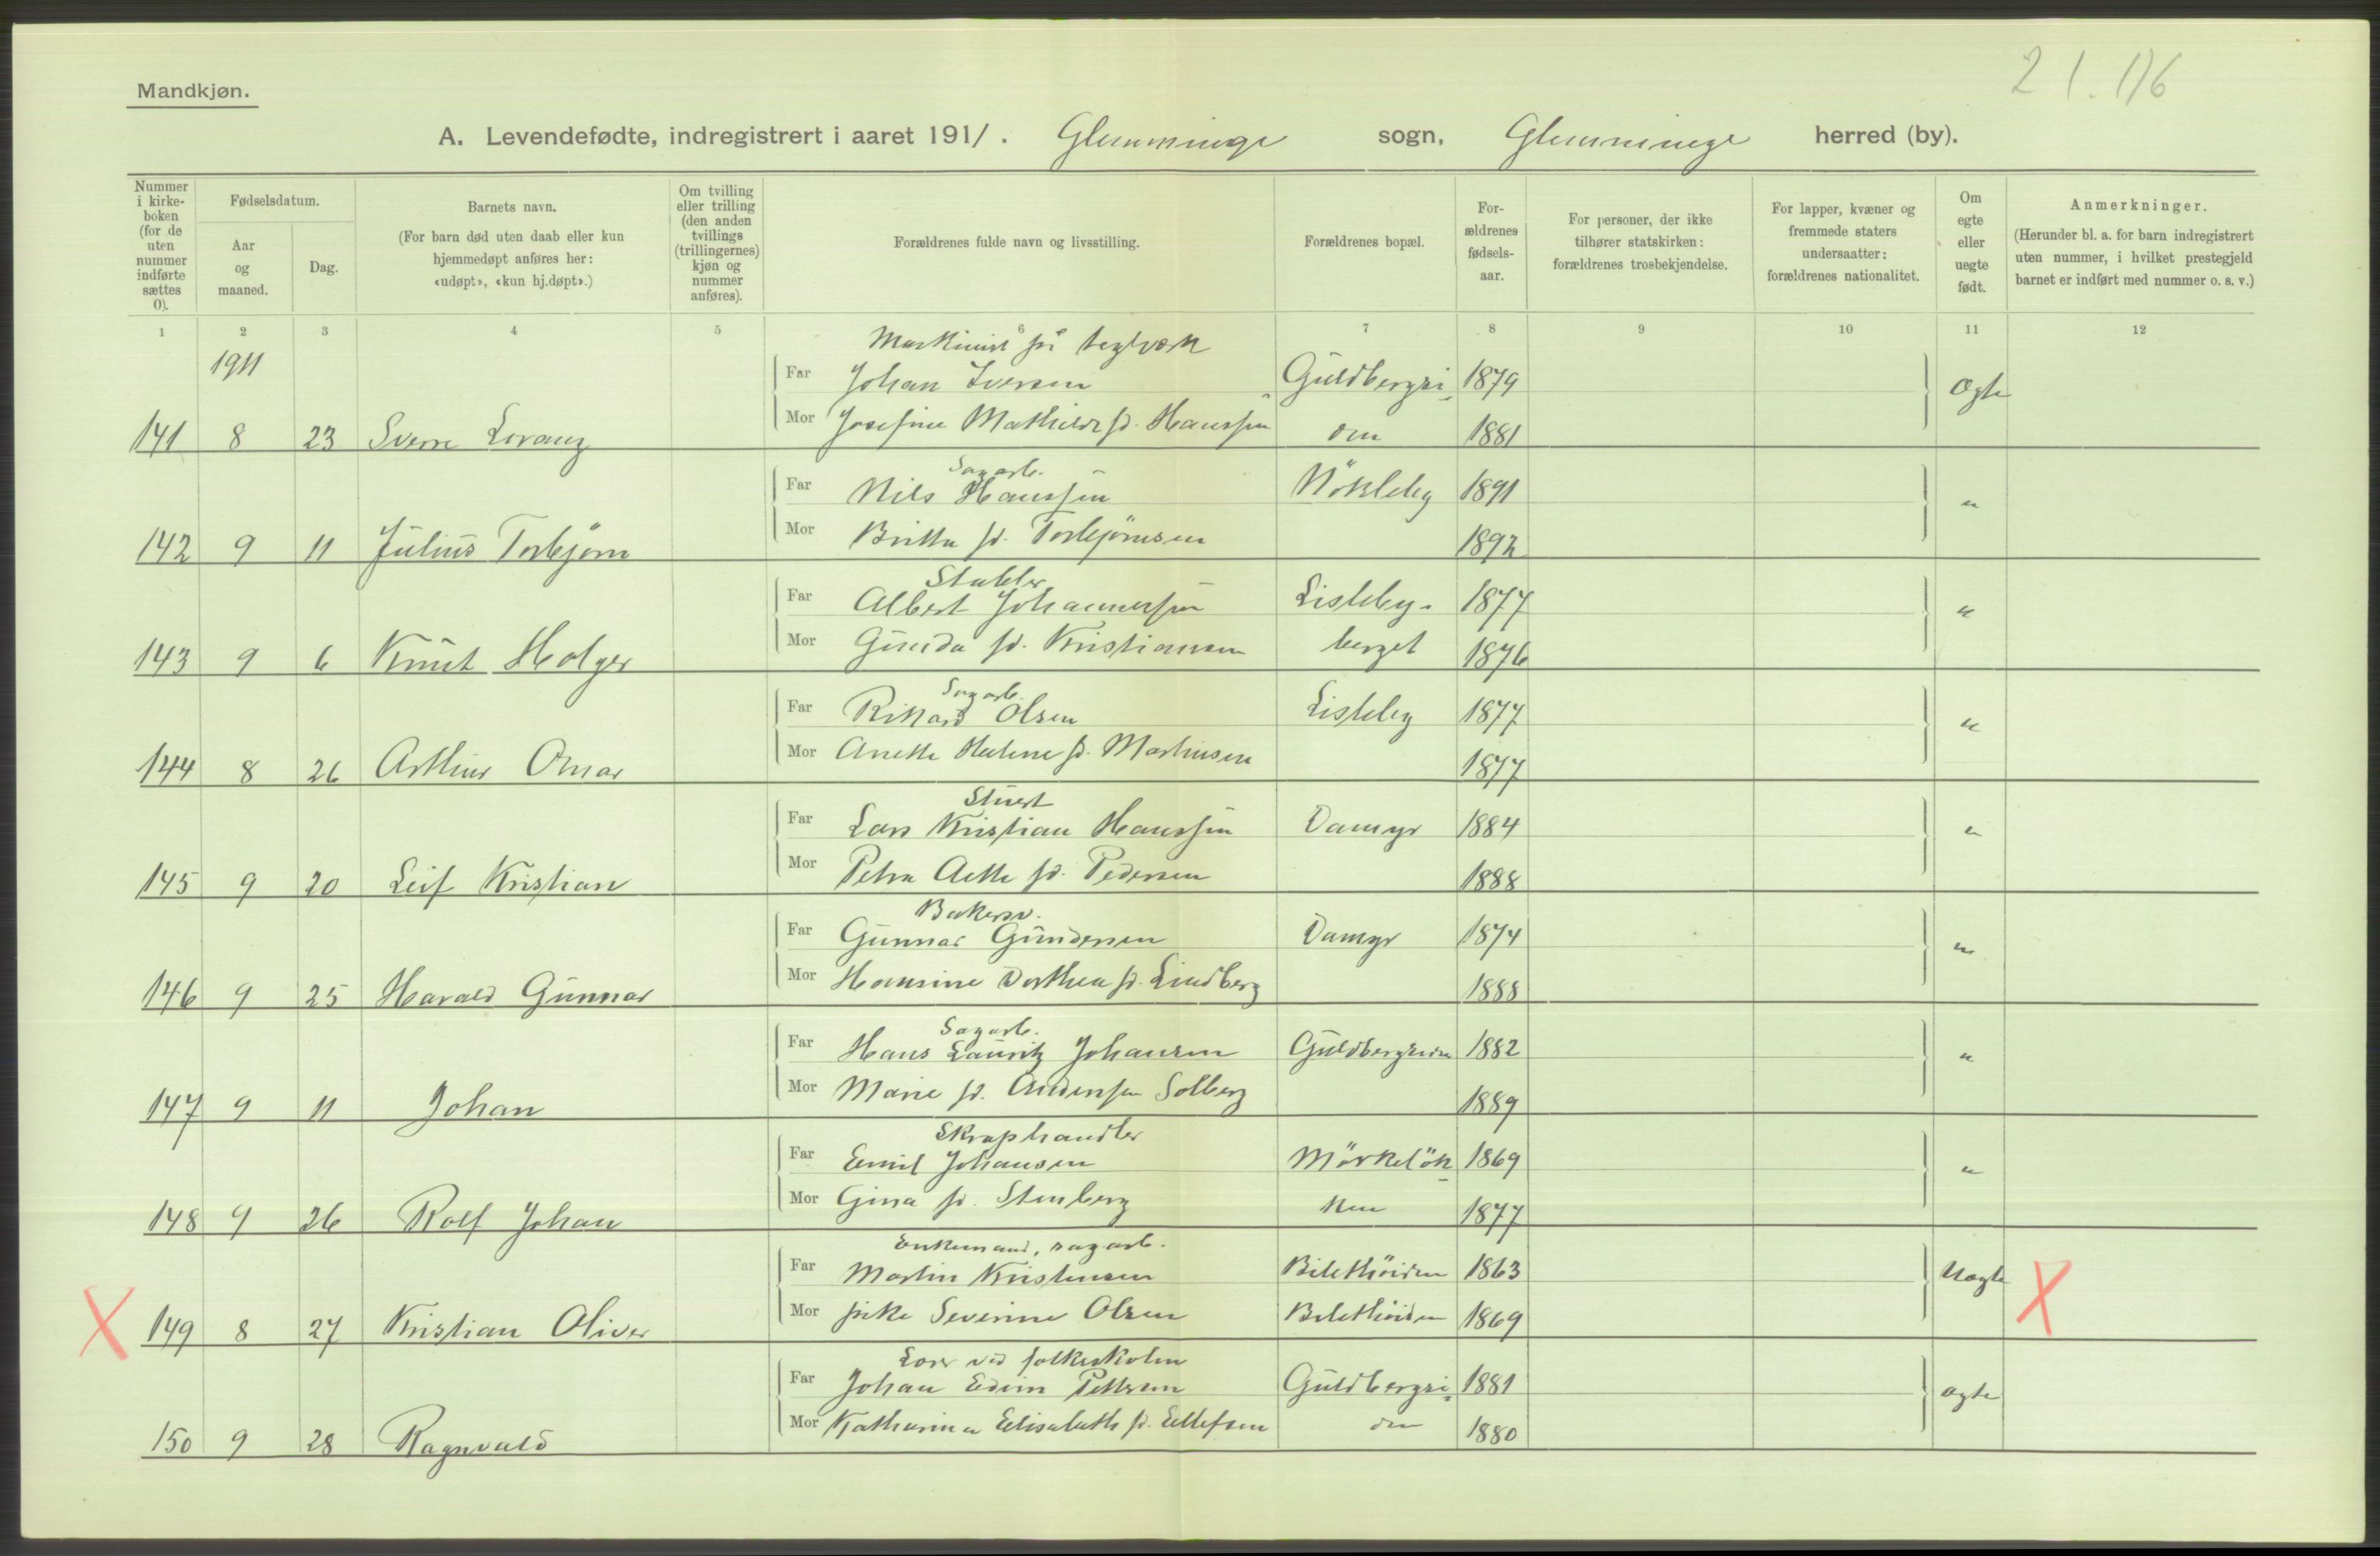 21.1/6
Mandkjøn.
A. Levendefødte, indregistrert i aaret 1911. Glemminge sogn, Glemminge herred (by).
Nummer i kirke-boken (for de uten nummer indførte sættes 0).
Fødselsdatum.
Aar og maaned.
Dag.
Barnets navn.
(For barn død uten daab eller kun hjemmedøpt anføres her: «udøpt», «kun hj.døpt».)
Om tvilling eller trilling (den anden tvillings (trillingernes) kjøn og nummer anføres).
Forældrenes fulde navn og livsstilling.
Forældrenes bopæl.
For-ældrenes fødsels-aar.
For personer, der ikke tilhører statskirken: forældrenes trosbekjendelse.
For lapper, kvæner og fremmede staters undersaatter: forældrenes nationalitet.
Om egte eller uegte født.
Anmerkninger.
(Herunder bl. a. for barn indregistrert uten nummer, i hvilket prestegjeld barnet er indført med nummer o. s. v.)
1 2 3 4 5 6 7 8 9 10 11 12
1911
Maskinist på teglverk
Far Johan Iversen Guldbergsi- 1879 Ægte
Mor Josefine Mathilde fd. Hanssen den 1881
141 8 23 Sverre Lorang
Sagarb.
Far Nils Hanssen Nökleby 1891 "
Mor Britta fd. Torbjörnsen 1892
142 9 11 Julius Torbjørn
Stabler
Far Albert Johannessen Lisleby- 1877 "
Mor Gunda fd. Kristiansen berget 1876
143 9 6 Knut Holger
Sagarb.
Far Rikard Olsen Lisleby 1877 "
Mor Anette Helene fd. Martinsen 1877
144 8 26 Arthur Omar
Stuert
Far Lars Kristian Hanssen Damyr 1884 "
Mor Petra Aette fd. Pedersen 1888
145 9 20 Leif Kristian
Bakersv.
Far Gunnar Gundersen Damyr 1874 "
Mor Hansine Dorthea fd. Lindberg 1888
146 9 25 Harald Gunnar
Sagarb.
Far Hans Lauritz Johansen Guldbergsiden 1882 "
Mor Marie fd. Andersen Solberg 1889
147 9 11 Johan
Skraphandler
Far Emil Johansen Mörkelök- 1869 "
Mor Gina fd. Stenberg ken 1877
148 9 26 Rolf Johan
Enkemand, sagarb.
Far Martin Kristensen 1863 Uægte
Mor pike Severine Olsen 1869
X 149 8 27 Kristian Oliver X
Lærer ved folkeskolen
Far Johan Edvin Pettersen Guldbergsi- 1881 ægte
Mor Katharina Elisabeth fd. Ellefsen den 1880
150 9 28 Ragnvald